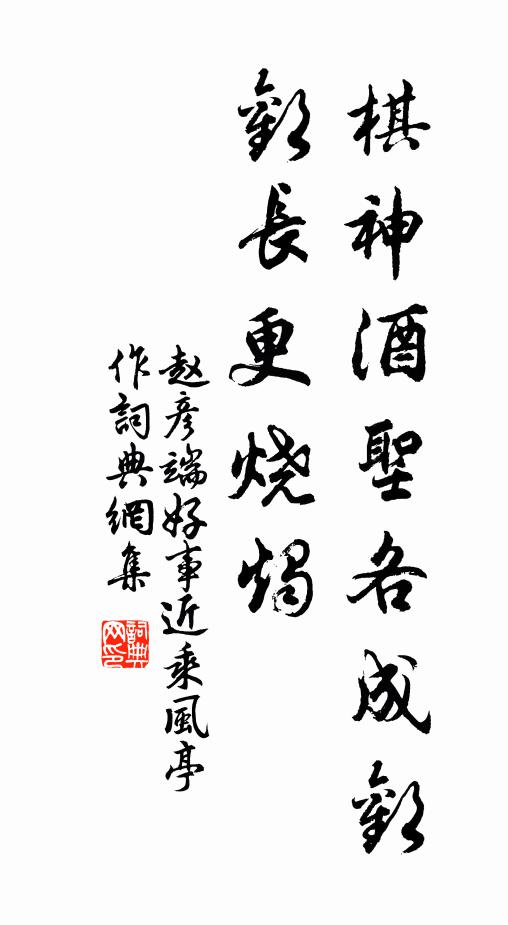 棋神酒聖各成歡
歡長更烧燭
赵彦端好事近乘風亭
作詞典網集
詞典网印